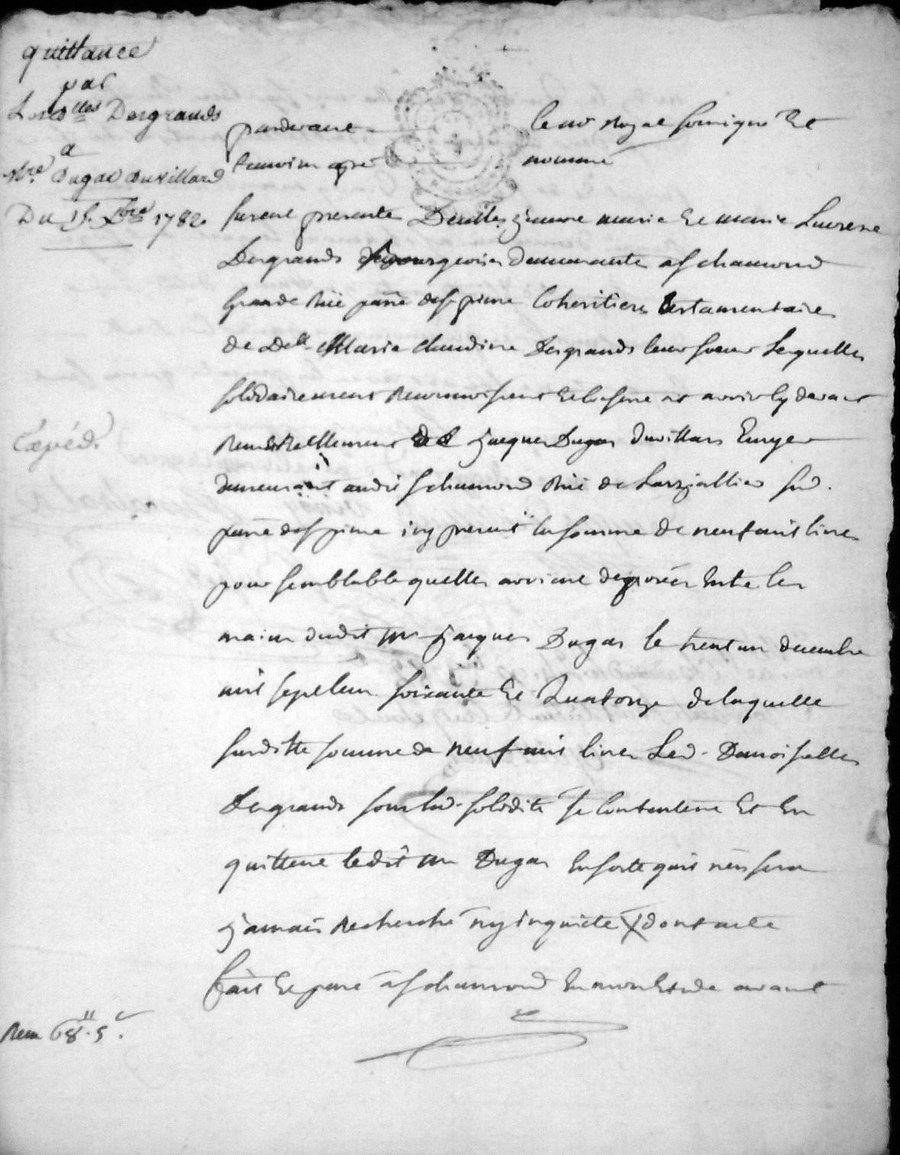 quittance
par
Les dlles Desgrands
a
Mre Dugas Duvillard
Du 15 Xbre 1782
pardevant le nre Royal soussigné Et
temoins apres nommé
furent presente Dlles jeanne marie Et marie Lucresse
Desgrands bourgeoises demeurante a St chamond
Grande Rüe parre de St pierre Coheritiere testamentaire
de Delle Marie Claudine Desgrands leur soeur Lequelles
solidairement Reconnoissent Et Confessent avoir Cy devant
Reçu Rellement de Sr jacques Dugas duvillars Ecuyer
demeurant audit St chamond Rüe de Sud.
parre de St pierre icy present la somme de neuf cents livres
pour semblable quelles avoient deposées Entre les
mains dudit mr jacques Dugas le trent un decembre
mil sept cent soixante Et Quatorze de laquelle
surditte somme de neuf cents livres Led. Damoiselles
Desgrands sous lad. solidité se Contentent Et En
quittent ledit mr Dugas En sorte quil n'en sera
jamais Recherché ny inquiete X dont acte
fait Et passé a St chamond En mon Etude avant
Expéd.
Reçu 68ll. 5s.